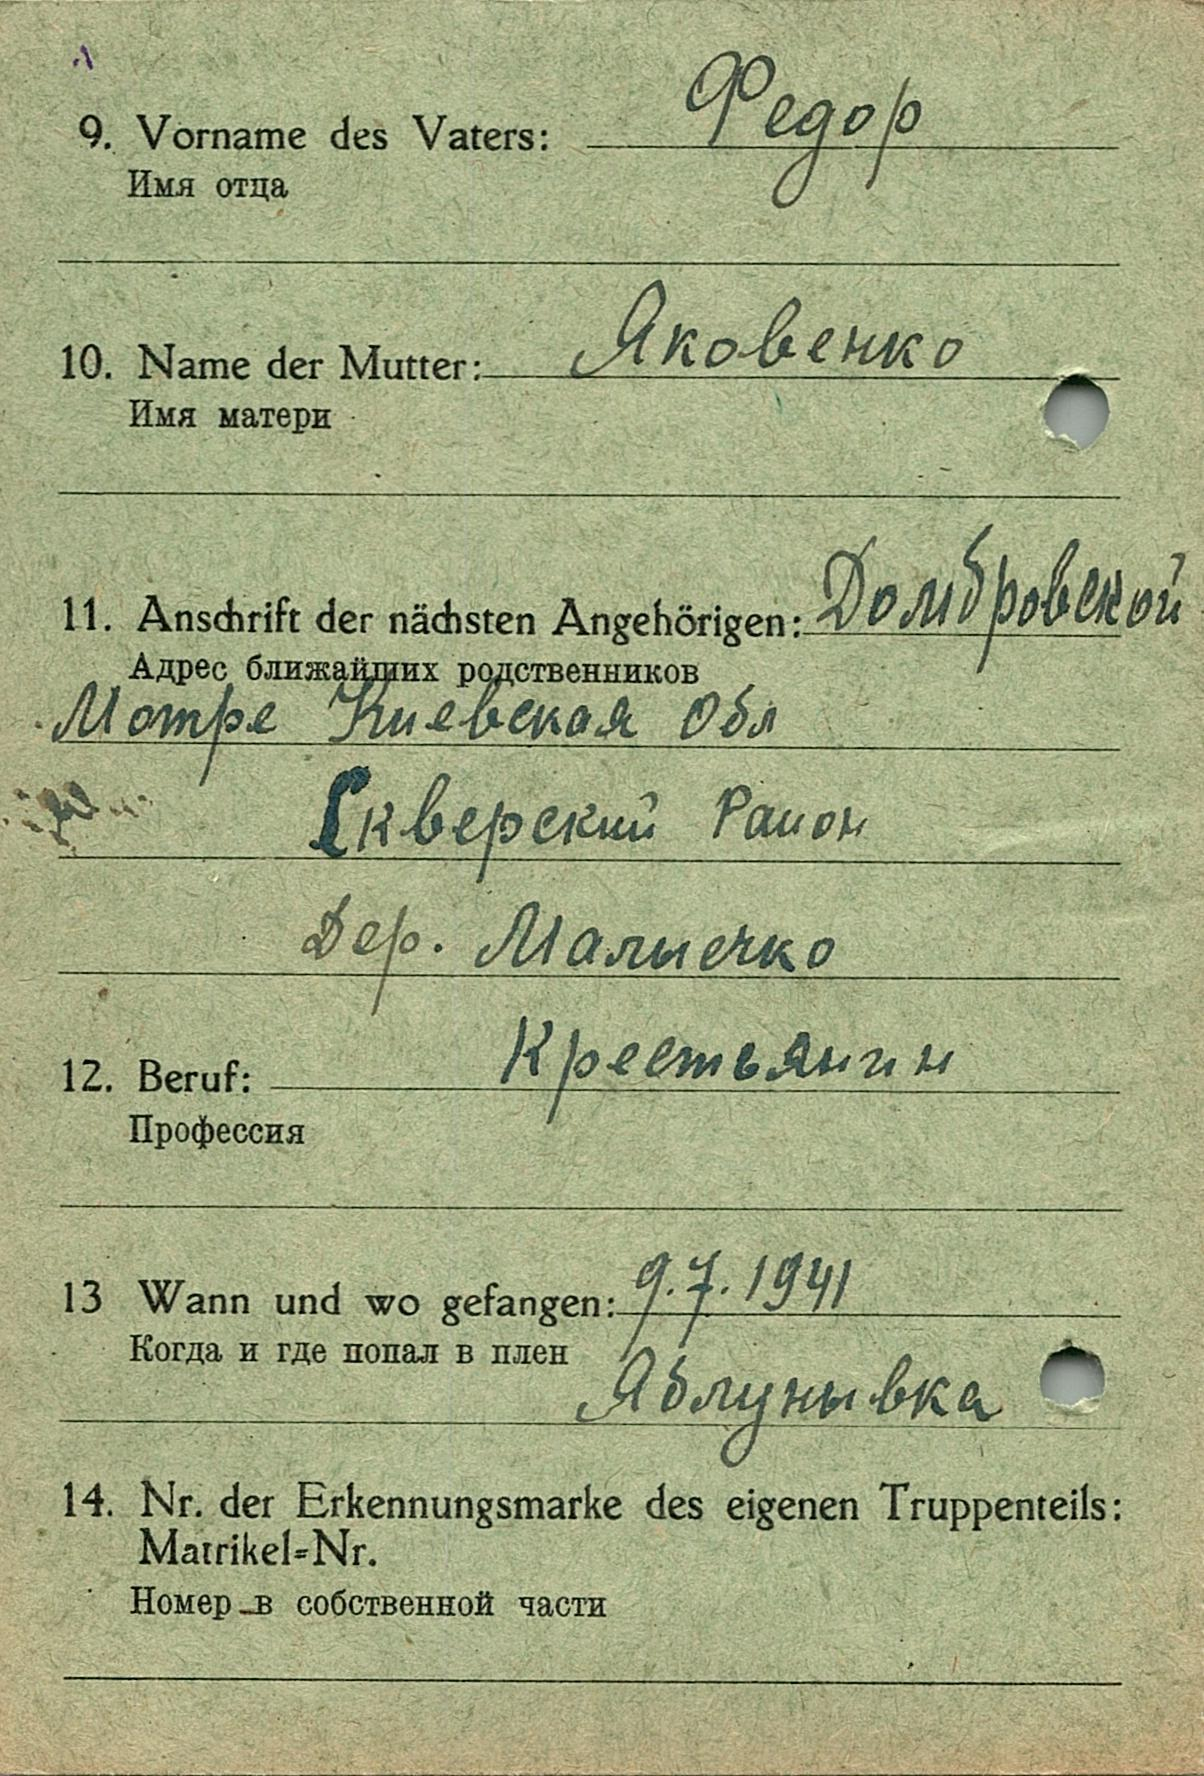 9. Vorname des Vaters: Федор
Имя отца
10. Name der Mutter: Яковенко
Имя матери
11. Anschrift der nächsten Angehörigen: Домбровской
Адрес ближайших родственников
Мотре Киевская Обл
Скверский Раион
Дер. Малыечко
12. Beruf: Крестьянин
Профессия
13 Wann und wo gefangen: 9.7.1941
Когда и где попал в плен
Яблунывка
14. Nr. der Erkennungsmarke des eigenen Truppenteils:
Matrikel=Nr.
Номер в собственной части